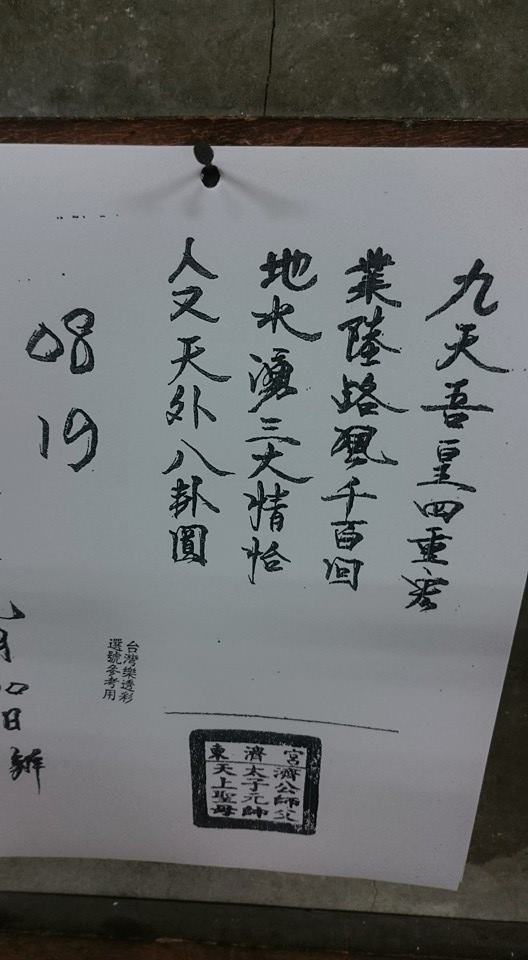 九天吾皇四重宮
業陸路風千百回
地水湧三大情怡
人又天外八卦圓
08
19
台灣樂透彩
選號參考用
月
日
宮濟東
濟公師父
太子元帥
天上聖母